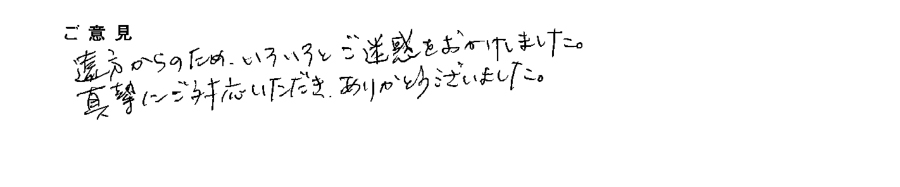 ご意見
遠方からのため、いろいろとご迷惑をおかけしました。
真摯にご対応いただき、ありがとうございました。